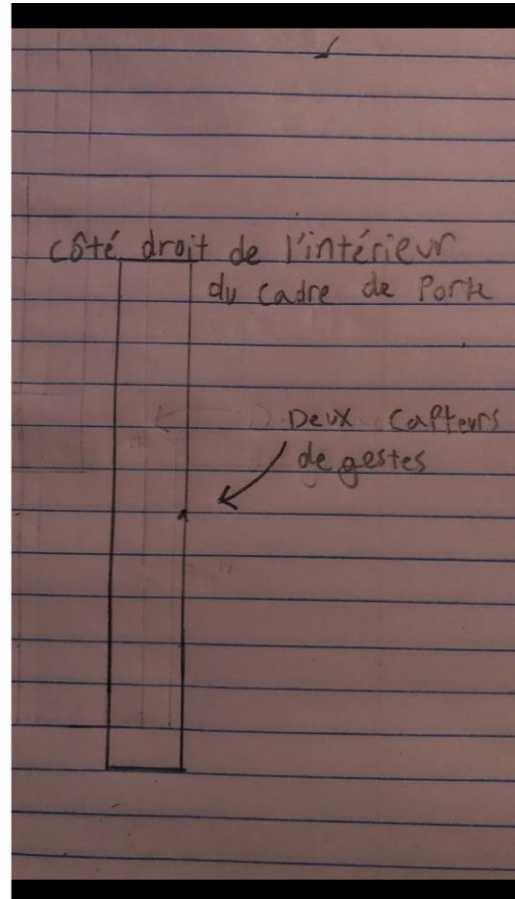 côté droit de l'intérieur
du cadre de Porte
Deux Capteurs
de gestes